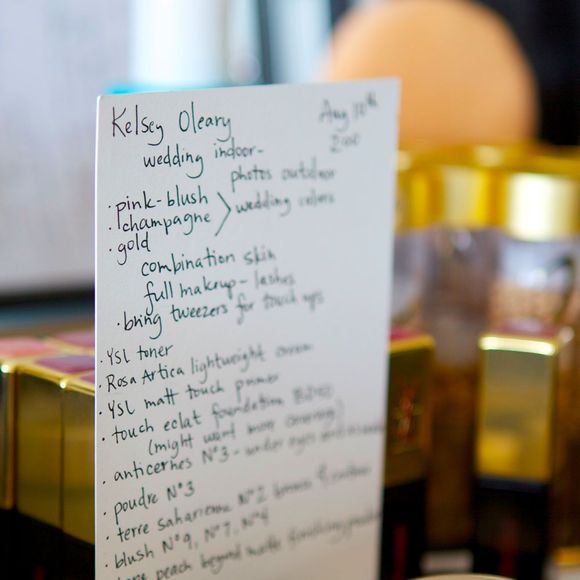 Kelsey Oleary Aug 10th
wedding indoor- 2:00
photos outdoor
· pink-blush
· champagne > wedding colors
· gold
combination skin
full makeup - lashes
· bring tweezers for touch ups
· YSL toner
· Rosa Artica lightweight cream
· YSL matt touch primer
· touch eclat foundation
(might want more covering)
· anticernes Nº3 - under eyes
· poudre Nº3
· terre saharienne Nº2 bronze &
· blush Nº9, Nº7, Nº4
peach beyond matte finishing